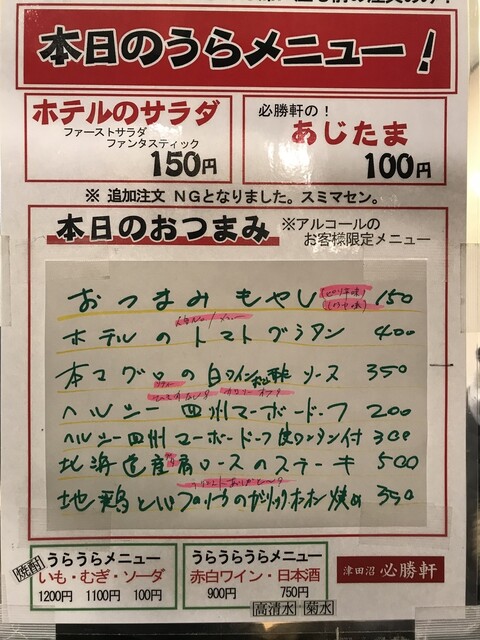 本日のうらメニュー!
ホテルのサラダ
ファーストサラダ
ファンタスティック
150円
必勝軒の!
あじたま
100円
※ 追加注文 NGとなりました。スミマセン。
本日のおつまみ
※アルコールの
お客様限定メニュー
おつまみもやし 150
ホテルのトマトグラタン 400
本マグロの白ワイン ソース 350
ヘルシー四川マーボードーフ 200
ヘルシー四川マーボードーフ ワンタン付 300
北海道産肩ロースのステーキ 500
地鶏と 焼め 350
焼酎
うらうらメニュー
いも・むぎ・ソーダ
1200円 1100円 100円
うらうらうらメニュー
赤白ワイン・日本酒
900円 750円
高清水 菊水
津田沼 必勝軒